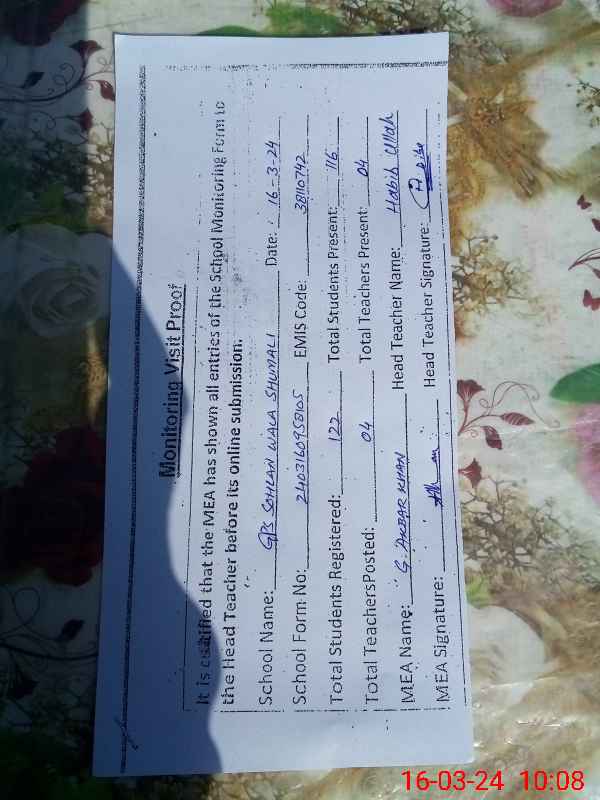 Monitoring Visit Proof
It is certified that the MEA has shown all entries of the School Monitoring Form to
the Head Teacher before its online submission.
School Name: GPS SOHLAN WALA SHUMALI Date: 16-3-24
School Form No: 2403160958105 EMIS Code: 38110742
Total Students Registered: 122 Total Students Present: 116
Total TeachersPosted: 04 Total Teachers Present: 04
MEA Name: G. AKBAR KHAN Head Teacher Name: Habib Ullah
MEA Signature: Head Teacher Signature:
16-03-24 10:08